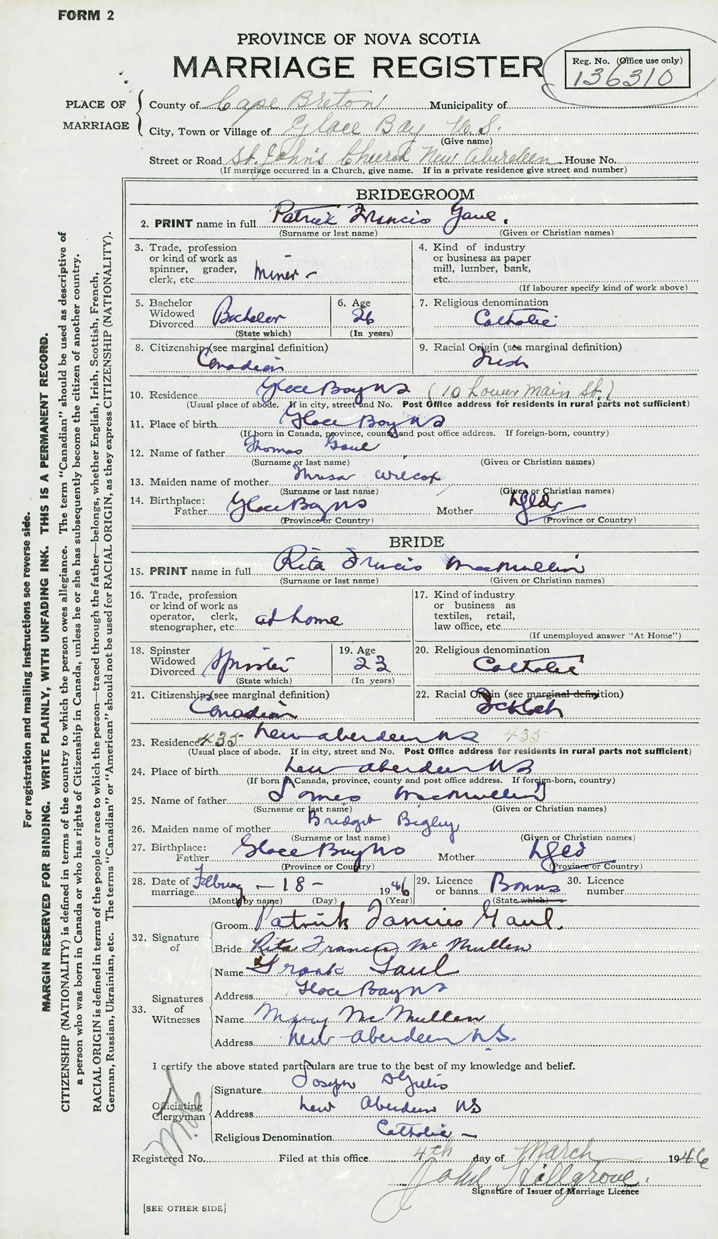 FORM 2
PROVINCE OF NOVA SCOTIA
MARRIAGE REGISTER
Reg. No. (Office use only)
136310
PLACE OF MARRIAGE
County of Cape Breton Municipality of
City, Town or Village of Glace Bay N.S.
(Give name)
Street or Road St. John's Church New Aberdeen House No.
(If marriage occurred in a Church, give name. If in a private residence give street and number)
BRIDEGROOM
2. PRINT name in full Patrick Francis Gaul.
(Surname or last name) (Given or Christian names)
3. Trade, profession or kind of work as spinner, grader, clerk, etc. Miner -
4. Kind of industry or business as paper mill, lumber, bank, etc.
(If labourer specify kind of work above)
5. Bachelor Widowed Divorced Bachelor
(State which)
6. Age 26
(In years)
7. Religious denomination
Catholic
8. Citizenship (see marginal definition)
Canadian
9. Racial Origin (see marginal definition)
Irish
10. Residence Glace Bay NS (10 Lower Main St.)
(Usual place of abode. If in city, street and No. Post Office address for residents in rural parts not sufficient)
11. Place of birth Glace Bay NS
(If born in Canada, province, county and post office address. If foreign-born, country)
12. Name of father Thomas Gaul
(Surname or last name) (Given or Christian names)
13. Maiden name of mother Wilcox
(Surname or last name) (Given or Christian names)
14. Birthplace: Father Glace Bay NS Mother Nfld
(Province or Country) (Province or Country)
BRIDE
15. PRINT name in full Rita Francis MacMullin
(Surname or last name) (Given or Christian names)
16. Trade, profession or kind of work as operator, clerk, stenographer, etc. at home
17. Kind of industry or business as textiles, retail, law office, etc.
(If unemployed answer "At Home")
18. Spinster Widowed Divorced Spinster
(State which)
19. Age 23
(In years)
20. Religious denomination
Catholic
21. Citizenship (see marginal definition)
Canadian
22. Racial Origin (see marginal definition)
Scotch
23. Residence 435 New Aberdeen NS 435
(Usual place of abode. If in city, street and No. Post Office address for residents in rural parts not sufficient)
24. Place of birth New Aberdeen NS
(If born in Canada, province, county and post office address. If foreign-born, country)
25. Name of father James MacMullin
(Surname or last name) (Given or Christian names)
26. Maiden name of mother Bridget Begley
(Surname or last name) (Given or Christian names)
27. Birthplace: Father Glace Bay NS Mother Nfld
(Province or Country) (Province or Country)
28. Date of marriage February - 18 - 1946
(Month by name) (Day) (Year)
29. Licence or banns Banns
(State which)
30. Licence number
32. Signature of
Groom Patrick Francis Gaul.
Bride Rita Frances McMullen
33. Signatures of Witnesses
Name Frank Gaul
Address Glace Bay NS
Name Mary McMullen
Address New Aberdeen N.S.
I certify the above stated particulars are true to the best of my knowledge and belief.
Officiating Clergyman
Signature Joseph
Address New Aberdeen NS
Religious Denomination Catholic -
Registered No. Filed at this office 4th day of March 1946
John
Signature of Issuer of Marriage Licence
[SEE OTHER SIDE]
For registration and mailing instructions see reverse side.
MARGIN RESERVED FOR BINDING. WRITE PLAINLY, WITH UNFADING INK. THIS IS A PERMANENT RECORD.
CITIZENSHIP (NATIONALITY) is defined in terms of the country to which the person owes allegiance. The term "Canadian" should be used as descriptive of
a person who was born in Canada or who has rights of Citizenship in Canada, unless he or she has subsequently become the citizen of another country.
RACIAL ORIGIN is defined in terms of the people or race to which the person—traced through the father—belongs, whether English, Irish, Scottish, French,
German, Russian, Ukrainian, etc. The terms "Canadian" or "American" should not be used for RACIAL ORIGIN, as they express CITIZENSHIP (NATIONALITY).